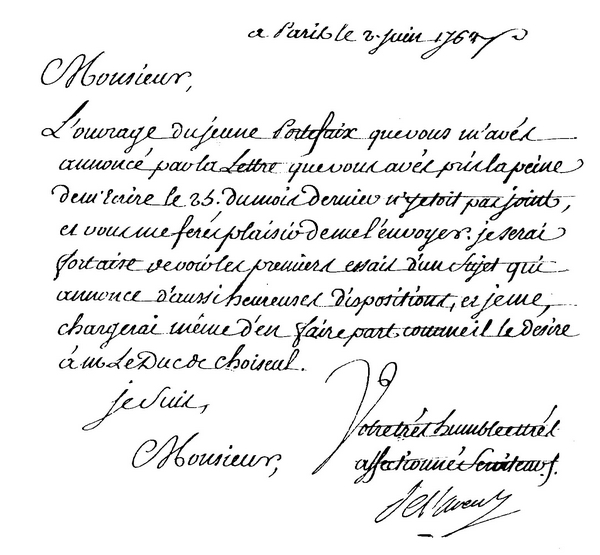 a Paris le 2. juin 176
Monsieur,
L'ouvrage du jeune Portefaix que vous m'avés
annoncé par la Lettre que vous avés pris la peine
de m'Ecrire le 25. du mois dernier n'y etoit pas joint,
et vous me ferés plaisir de me l'envoyer. je serai
fort aise de voir les premiers essais d'un Sujet qui
annonce d'aussi heureuses dispositions, et je me,
chargerai même d'en faire part comme il le désire
à m. Le Duc de Choiseul.
je suis,
Monsieur,
Votre très humble et très
affectionné Serviteur.